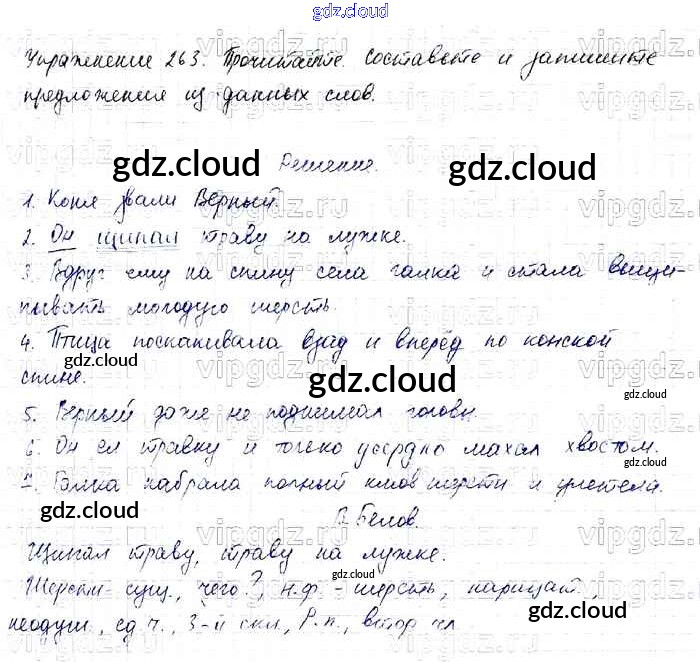 gdz.cloud
Упражнение 263. Прочитайте. Составьте и запишите
предложения из данных слов.
gdz.cloud Решение. gdz.cloud
1. Коня звали Верный.
2. Он щипал траву на лужке.
3. Вдруг ему на спину села галка и стала выщи-
пывать молодую шерсть.
4. Птица поскакивала взад и вперёд по конской
gdz.cloud gdz.cloud
спине. gdz.cloud gdz.cloud
5. Верный даже не поднимал головы.
6. Он ел травку и только усердно махал хвостом.
gdz.cloud
7. Галка набрала полный клюв шерсти и улетела.
gdz.cloud В. Белов. gdz.cloud
Щипал траву, траву на лужке.
gdz.cloud
Шерсти - сущ., чего?, н.ф. - шерсть, нарицат.,
gdz.cloud
неодуш., ед.ч., 3-й скл., Р.п., втор. чл.
gdz.cloud